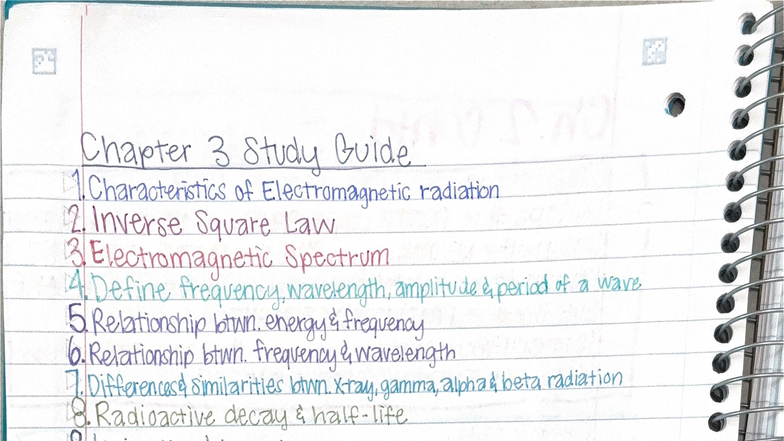 Chapter 3 Study Guide
1. Characteristics of Electromagnetic radiation
2. Inverse Square Law
3. Electromagnetic Spectrum
4. Define frequency, wavelength, amplitude & period of a wave
5. Relationship btwn. energy & frequency
6. Relationship btwn. frequency & wavelength
7. Differences & Similarities btwn. X-ray, gamma, alpha & beta radiation
8. Radioactive decay & half-life